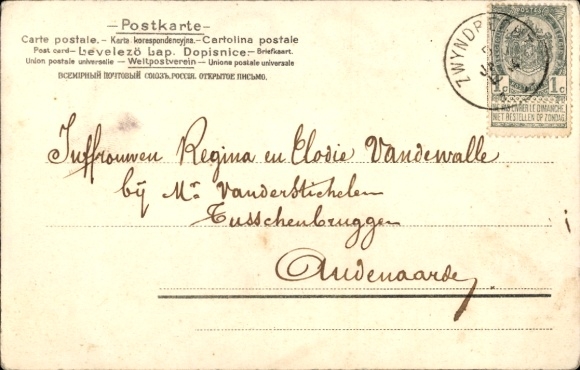 Postkarte
Carte postale. – Karta korespondencyjna. – Cartolina postale
Post card – Levelező Lap. Dopisnice. – Briefkaart.
Union postale universelle – Weltpostverein – Unione postale universale
ВСЕМІРНЫЙ ПОЧТОВЫЙ СОЮЗЪ, РОССІЯ. ОТКРЫТОЕ ПИСЬМО.
ZWYNDRE
1c 1c
NE PAS LIVRER LE DIMANCHE
NIET BESTELLEN OP ZONDAG
Juffrouwen Regina en Elodie Vandewalle
bij Mr Vanderstichelen
Tusschenbruggen
Audenaarde